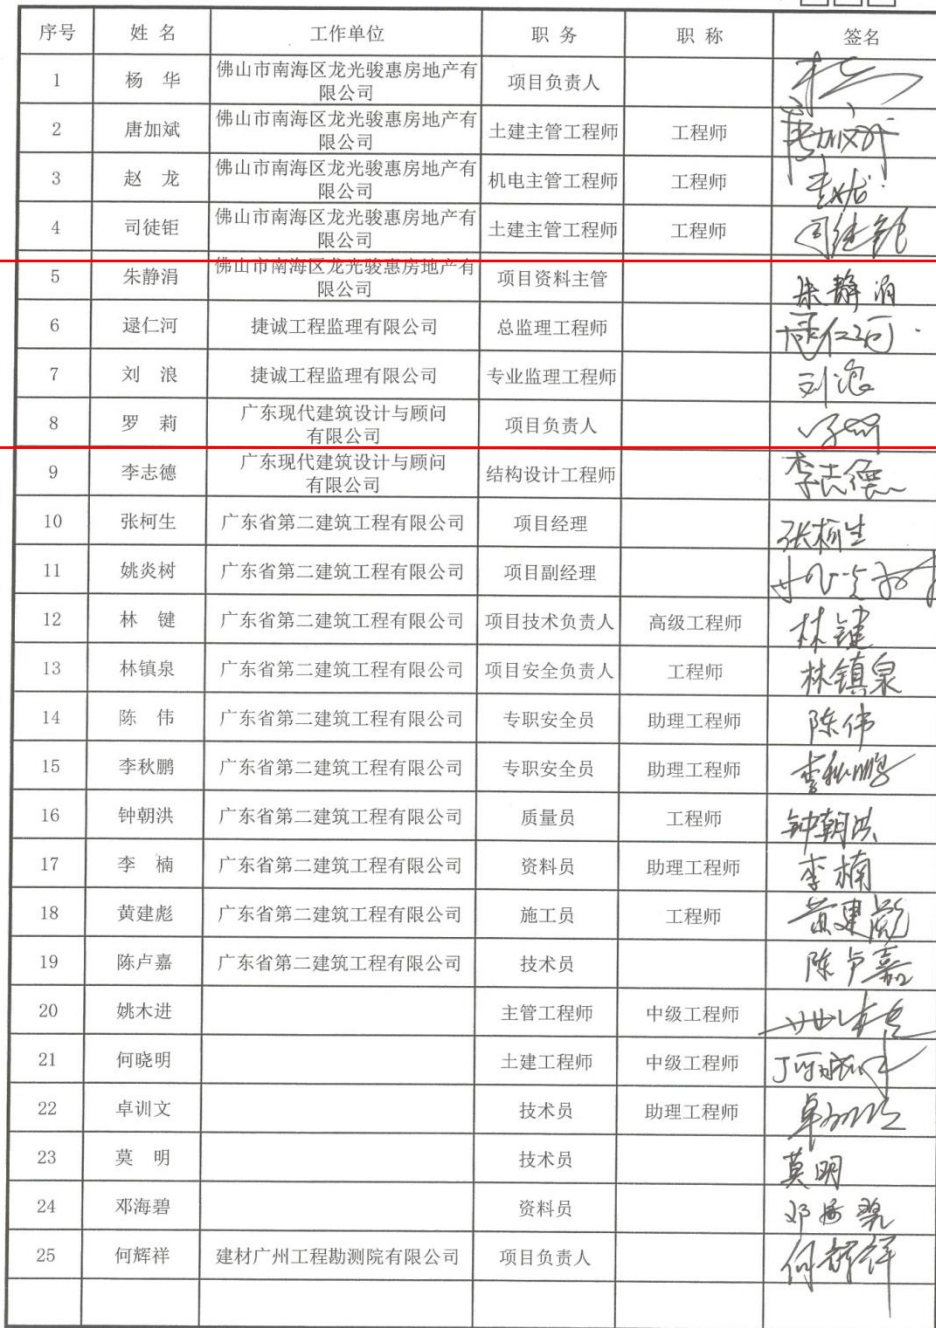 序号 姓 名 工作单位 职 务 职 称 签名
1 杨 华 佛山市南海区龙光骏惠房地产有限公司 项目负责人
2 唐加斌 佛山市南海区龙光骏惠房地产有限公司 土建主管工程师 工程师 唐加斌
3 赵 龙 佛山市南海区龙光骏惠房地产有限公司 机电主管工程师 工程师 赵龙
4 司徒钜 佛山市南海区龙光骏惠房地产有限公司 土建主管工程师 工程师 司徒钜
5 朱静涓 佛山市南海区龙光骏惠房地产有限公司 项目资料主管 朱静涓
6 逯仁河 捷诚工程监理有限公司 总监理工程师 逯仁河
7 刘 浪 捷诚工程监理有限公司 专业监理工程师 刘浪
8 罗 莉 广东现代建筑设计与顾问有限公司 项目负责人
9 李志德 广东现代建筑设计与顾问有限公司 结构设计工程师 李志德
10 张柯生 广东省第二建筑工程有限公司 项目经理 张柯生
11 姚炎树 广东省第二建筑工程有限公司 项目副经理
12 林 键 广东省第二建筑工程有限公司 项目技术负责人 高级工程师 林键
13 林镇泉 广东省第二建筑工程有限公司 项目安全负责人 工程师 林镇泉
14 陈 伟 广东省第二建筑工程有限公司 专职安全员 助理工程师 陈伟
15 李秋鹏 广东省第二建筑工程有限公司 专职安全员 助理工程师 李秋鹏
16 钟朝洪 广东省第二建筑工程有限公司 质量员 工程师 钟朝洪
17 李 楠 广东省第二建筑工程有限公司 资料员 助理工程师 李楠
18 黄建彪 广东省第二建筑工程有限公司 施工员 工程师 黄建彪
19 陈卢嘉 广东省第二建筑工程有限公司 技术员 陈卢嘉
20 姚木进 主管工程师 中级工程师
21 何晓明 土建工程师 中级工程师
22 卓训文 技术员 助理工程师
23 莫 明 技术员 莫明
24 邓海碧 资料员 邓海碧
25 何辉祥 建材广州工程勘测院有限公司 项目负责人 何辉祥